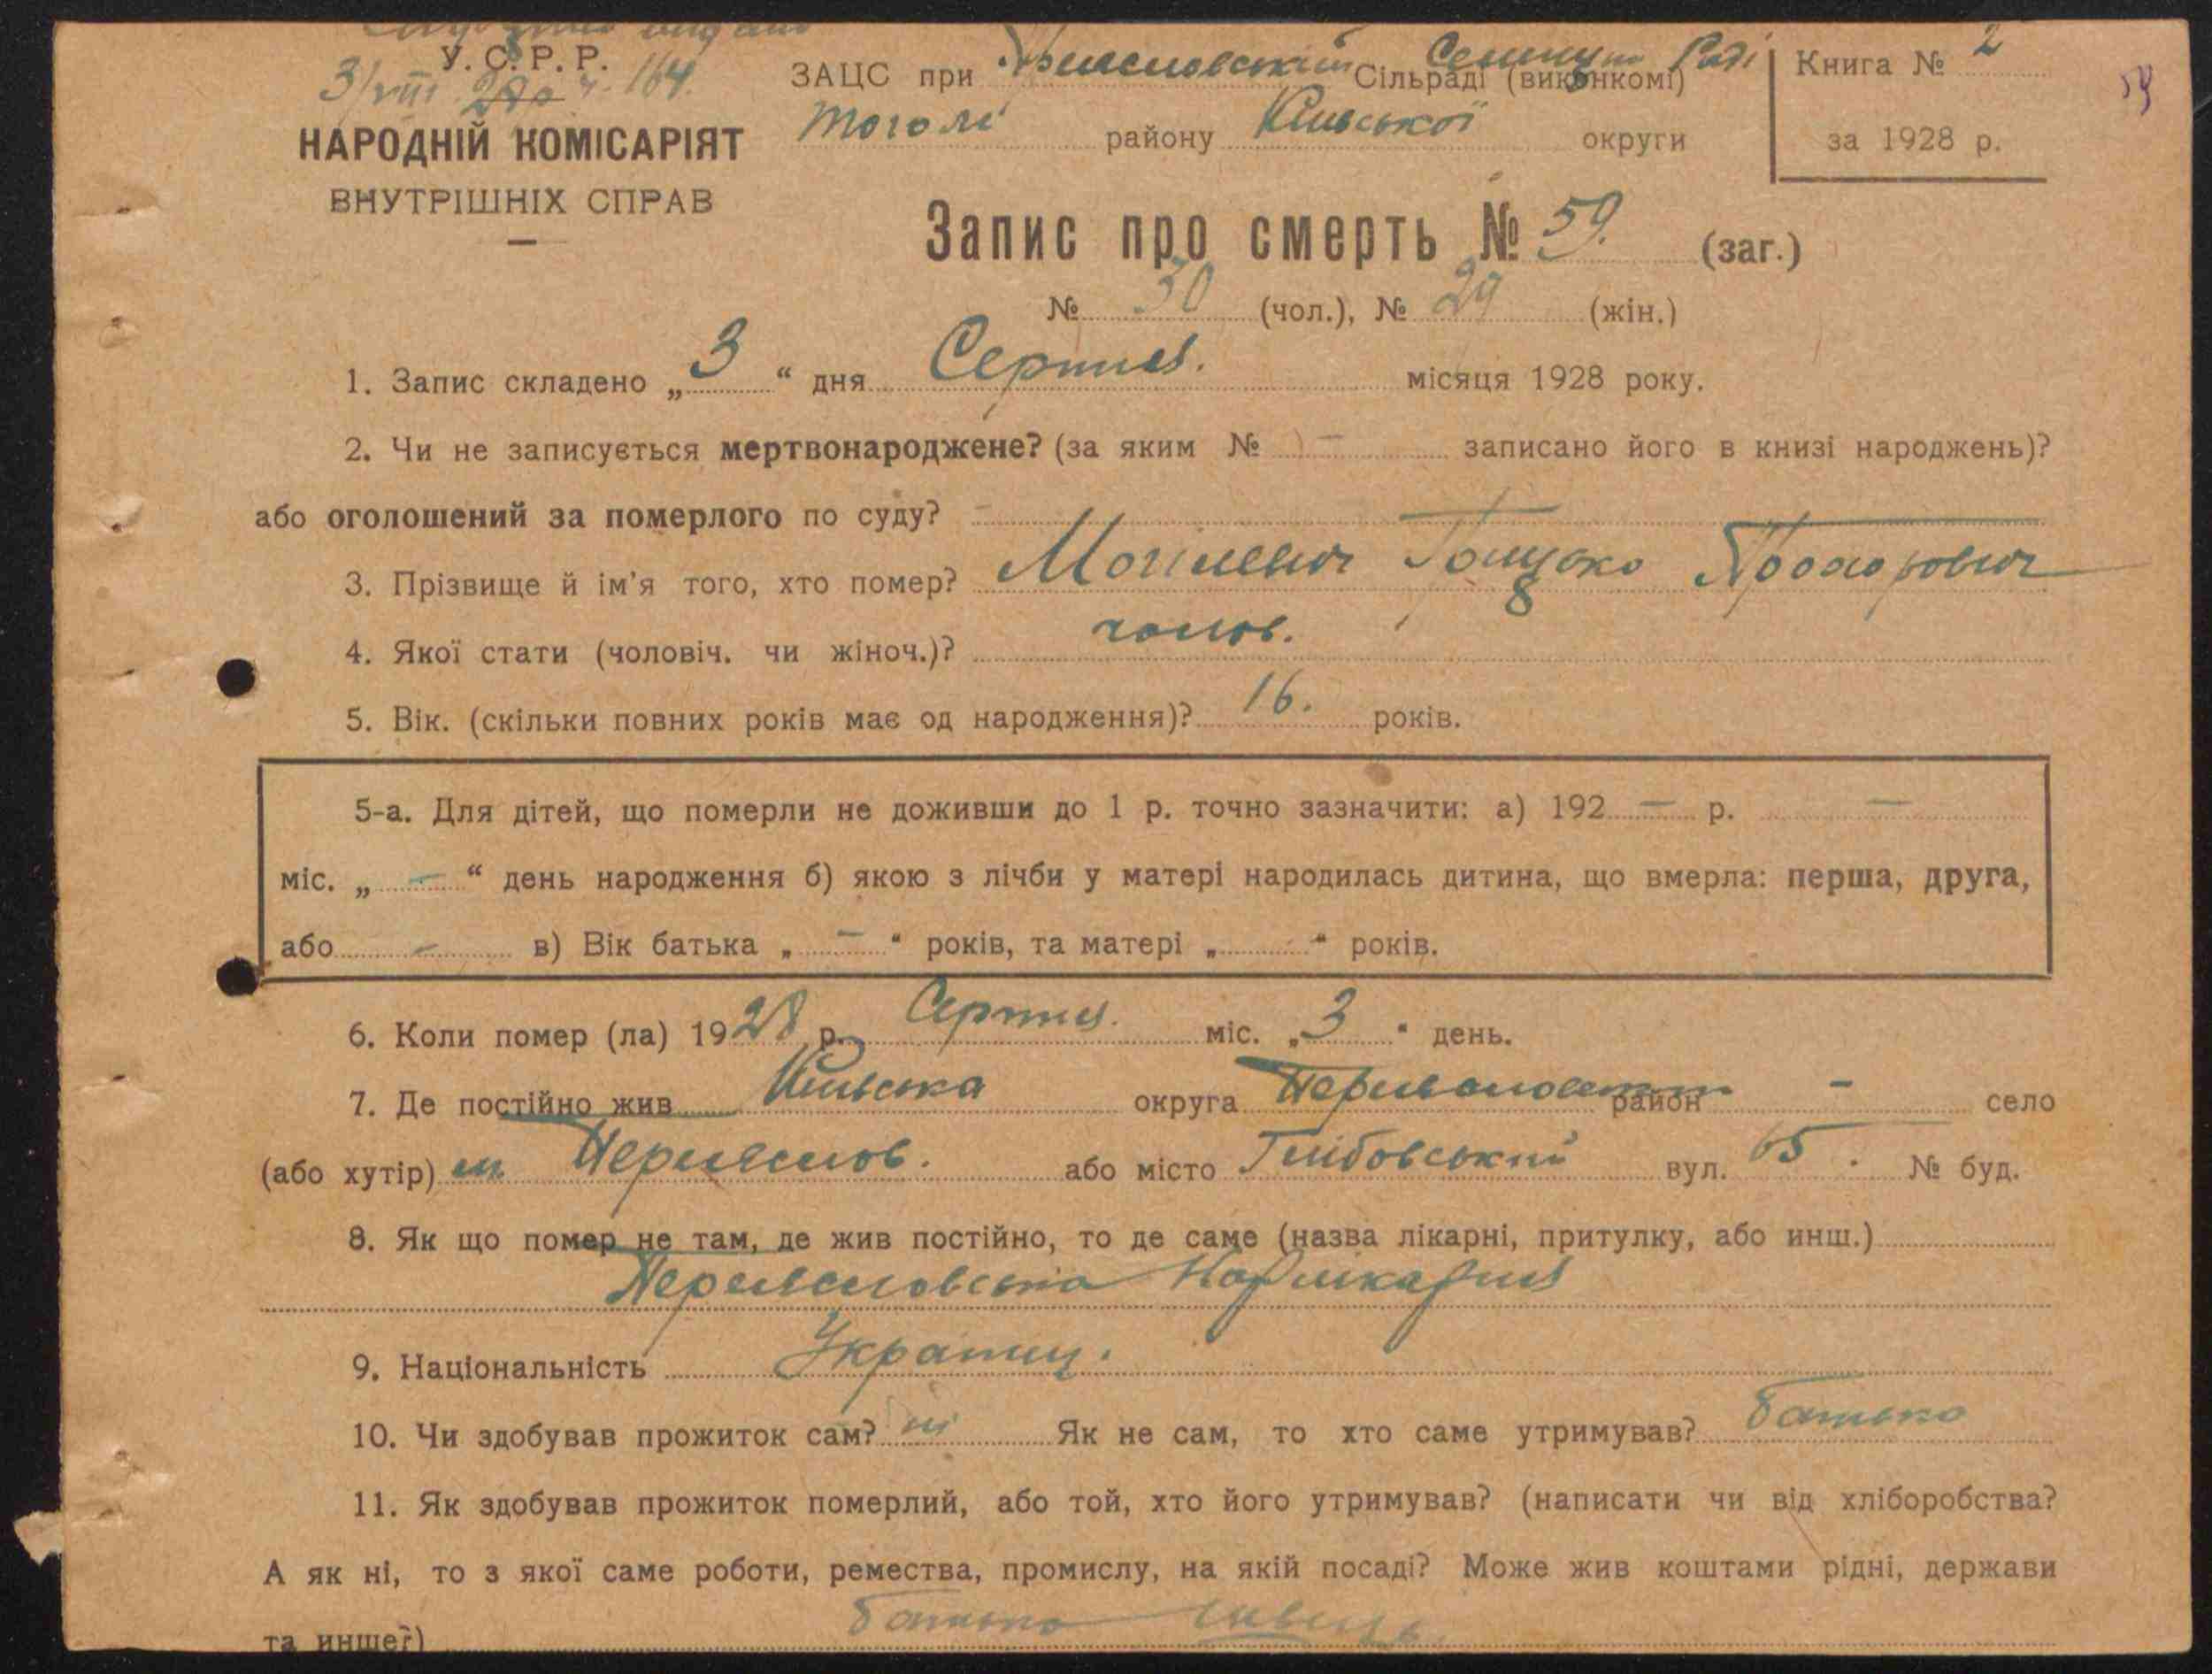 У.С.Р.Р.
3/VIII 28 р ч. 164.
НАРОДНІЙ КОМІСАРІЯТ
ВНУТРІШНІХ СПРАВ
ЗАЦС при Сільраді (виконкомі)
того ж району Київської округи
Книга № 2
за 1928 р.
59
Запис про смерть № 59. (заг.)
№ 30 (чол.), № 29 (жін.)
1. Запис складено „ 3 “ дня Серпня. місяця 1928 року.
2. Чи не записується мертвонароджене? (за яким № – записано його в книзі народжень)?
або оголошений за померлого по суду? –
3. Прізвище й ім'я того, хто помер? Прохорович
4. Якої стати (чоловіч. чи жіноч.)? чолов.
5. Вік. (скільки повних років має од народження)? 16. років.
5-а. Для дітей, що померли не доживши до 1 р. точно зазначити: а) 192 – р. –
міс. „ – “ день народження б) якою з лічби у матері народилась дитина, що вмерла: перша, друга,
або – в) Вік батька „ – “ років, та матері „ – “ років.
6. Коли помер (ла) 1928 р. Серпня. міс. „ 3 “ день.
7. Де постійно жив Київська округа район – село
(або хутір) м. Переяслов. або місто Глібовський вул. 65. № буд.
8. Як що помер не там, де жив постійно, то де саме (назва лікарні, притулку, або инш.)
Переясловська Нарлікарня
9. Національність Українець.
10. Чи здобував прожиток сам? ні Як не сам, то хто саме утримував? батько
11. Як здобував прожиток померлий, або той, хто його утримував? (написати чи від хліборобства?
А як ні, то з якої саме роботи, ремества, промислу, на якій посаді? Може жив коштами рідні, держави
та инше?) батько швець.